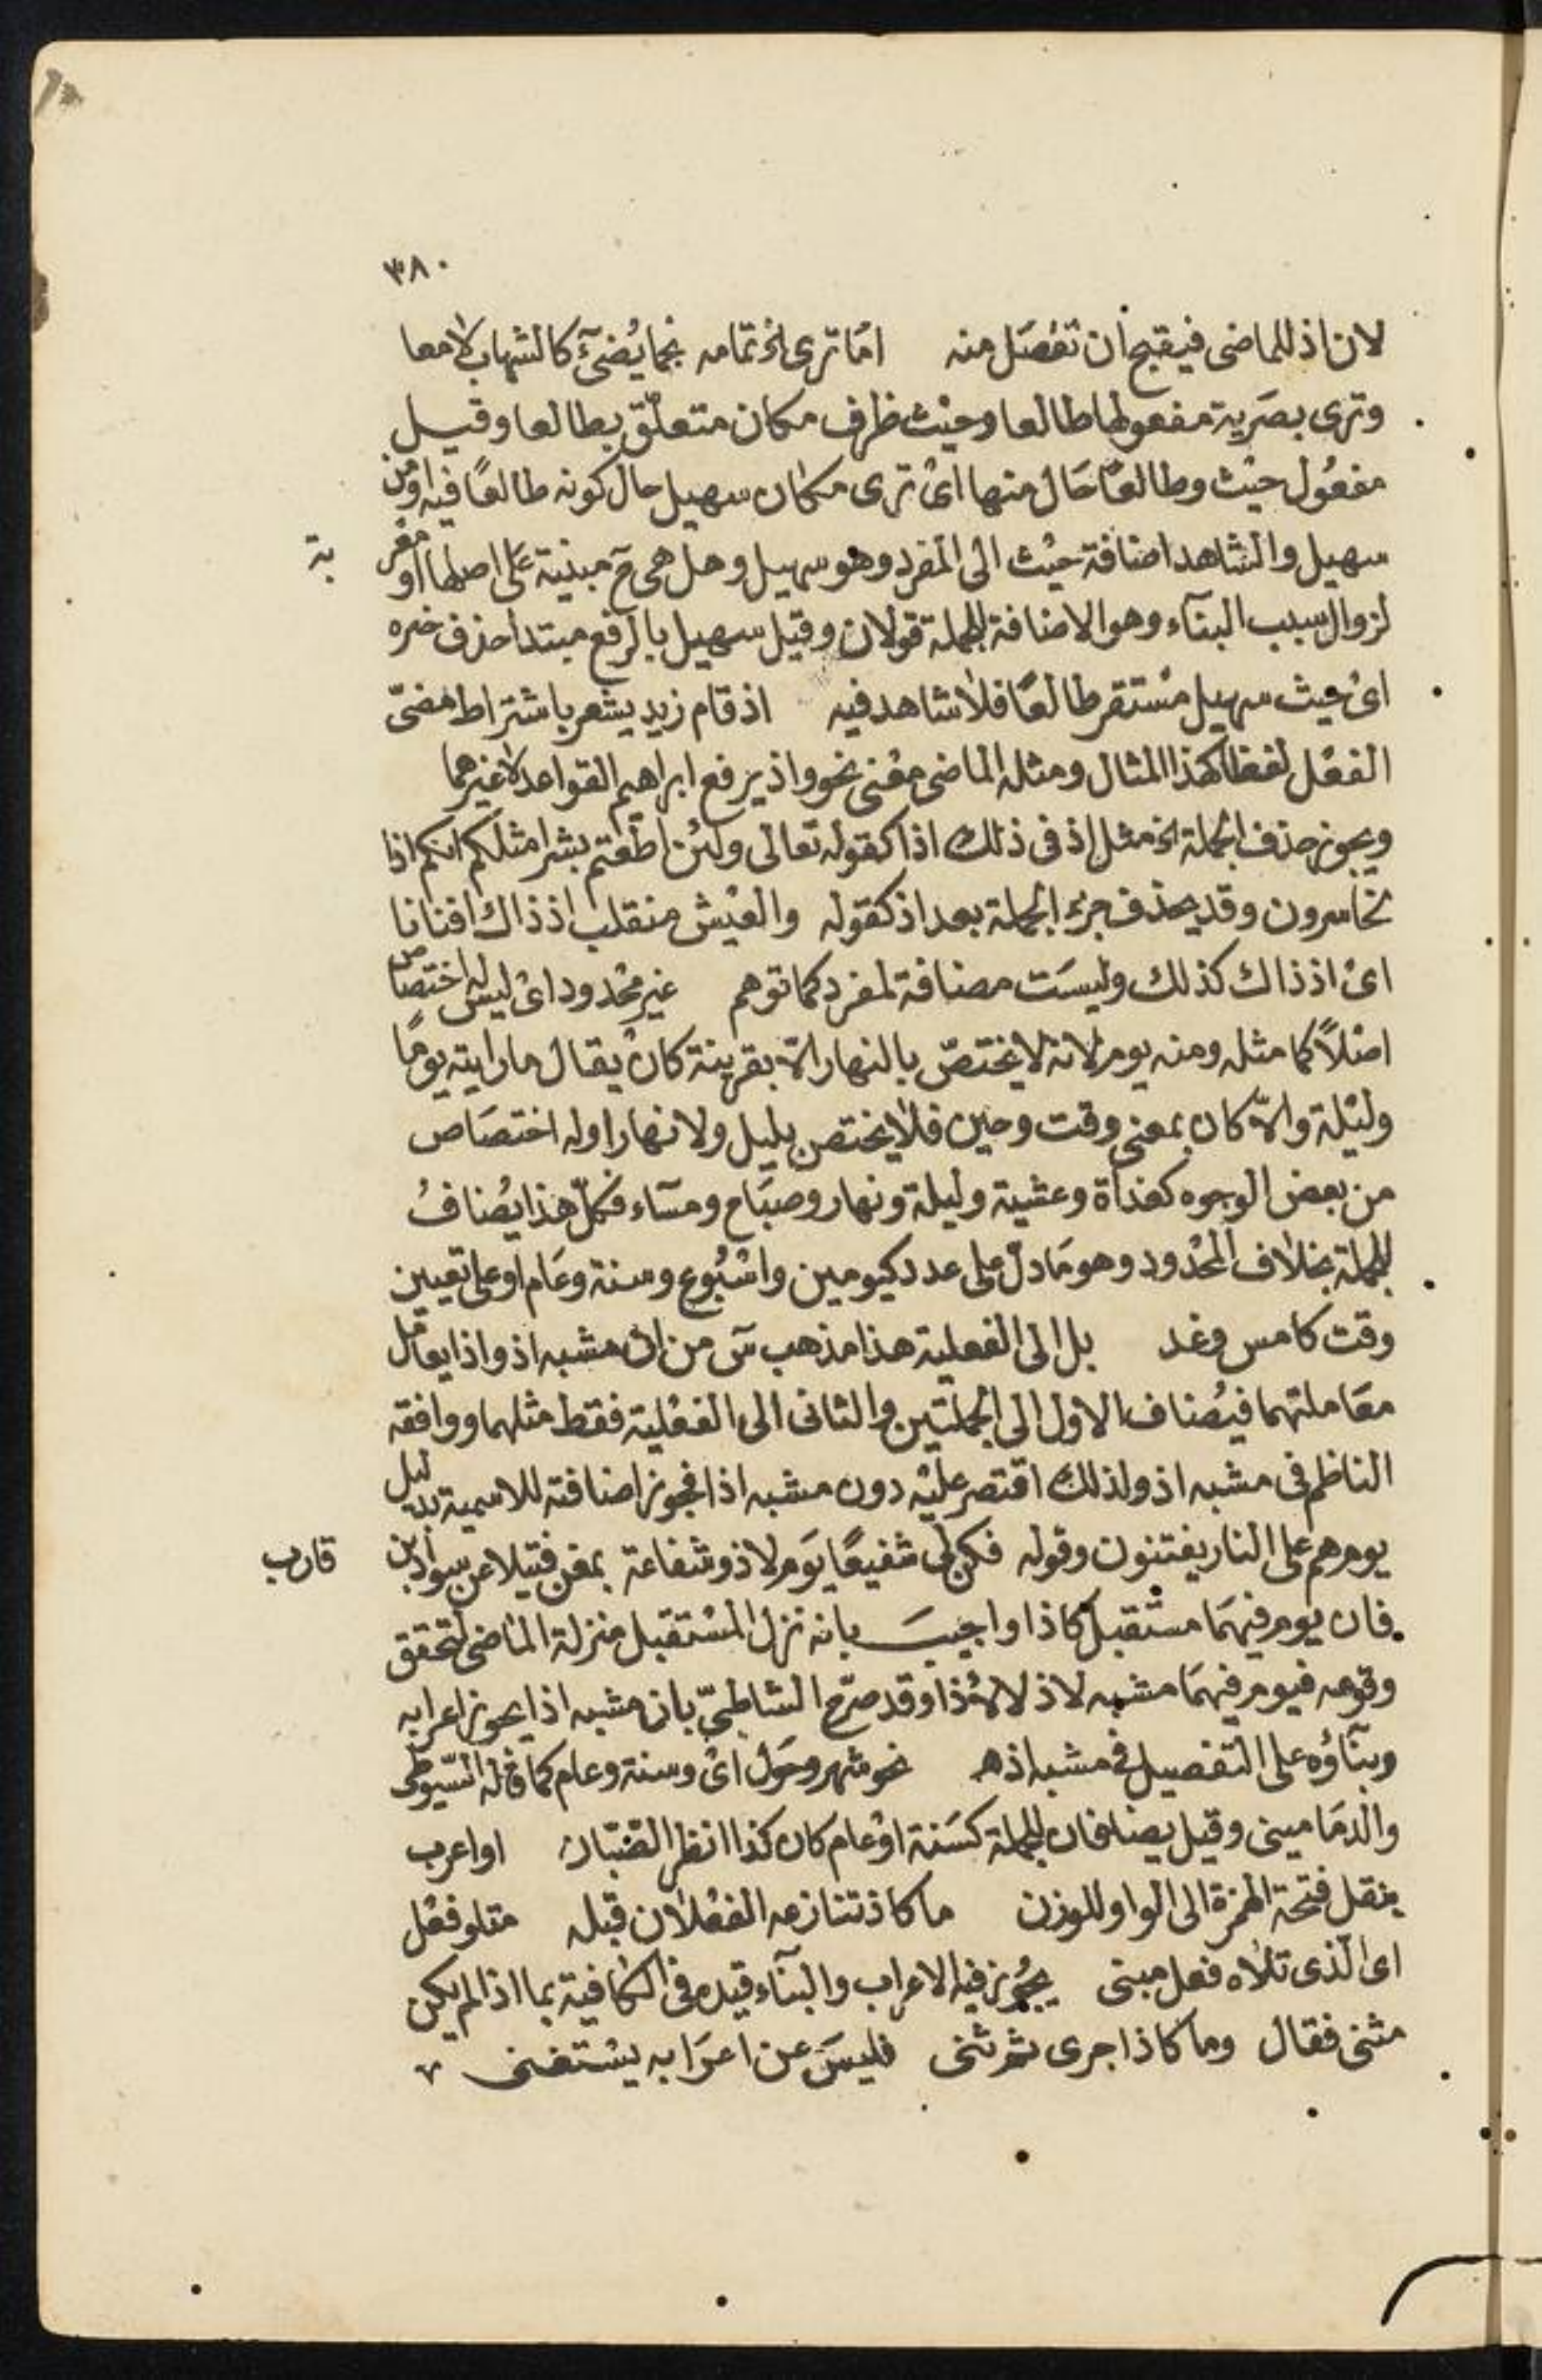 ٣٨٠
لان اذ للماضى فيقبح ان تفصل منه اما ترى الخ تمامه نجما يضئ كالشهاب لامعا
وترى بصرية مفعولها طالعا وحيث ظرف مكان متعلق بطالعا وقيل
مفعول حيث وطالعا حال منها اى ترى مكان سهيل حال كونه طالعا فيه او من
سهيل والشاهد اضافة حيث الى المفرد وهو سهيل وهل هى ح مبنية على اصلها او معر بة
لزوال سبب البناء وهو الاضافة للجملة قولان وقيل سهيل بالرفع مبتدا حذف خبره
اى حيث سهيل مستقر طالعا فلا شاهد فيه اذ قام زيد يشعر باشتراط مضىّ
الفعل لفظا كهذا المثال ومثله الماضى معنى نحو واذ يرفع ابراهيم القواعد لا غيرهما
ويجوز حذف الجملة الخ مثل اذ فى ذلك اذا كقوله تعالى ولئن اطعتم بشرا مثلكم انكم اذا
لخاسرون وقد يحذف جزء الجملة بعد اذ كقوله والعيش منقلب اذ ذاك افنانا
اى اذ ذاك كذلك وليست مضافة لمفرد كما توهم غير محدود اى ليس له اختصاص
اصلاً كما مثله ومنه يوم لانه لا يختصّ بالنهار الاّ بقرينة كان يقال ما رايته يوما
وليلة والاّ كان بمعنى وقت وحين فلا يختص بليل ولا نهار او له اختصاص
من بعض الوجوه كغداة وعشية وليلة ونهار وصباح ومساء فكلّ هذا يضافُ
للجملة بخلاف المحدود وهو ما دل على عدد كيومين واسبوع وسنة وعام او على تعيين
وقت كامس وغد بل الى الفعلية هذا مذهب س من ان مشبه اذ واذا يعامل
معاملتهما فيضاف الاول الى الجملتين والثانى الى الفعلية فقط مثلهما ووافقه
الناظم فى مشبه اذ ولذلك اقتصر عليه دون مشبه اذا فجوز اضافته للاسمية بدليل
يوم هم على النار يفتنون وقوله فكن لى شفيعا يوم لا ذو شفاعة بمغن فتيلا عن سواد بن قارب
فان يوم فيهما مستقبل كاذا واجيب بانه نزل المستقبل منزلة الماضى لتحقق
وقوعه فيوم فيهما مشبه لاذ لا لاذا وقد صرّح الشاطبىّ بان مشبه اذا يجوز اعرابه
وبناؤه على التفصيل فى مشبه اذ هـ نحو شهر وحول اى وسنة وعام كما قاله السيوطى
والدمامينى وقيل يضافان للجملة كسنة او عام كان كذا انظر الصبّان او اعرب
بنقل فتحة الهمزة الى الواو للوزن ما كاذ تنازعه الفعلان قبله متلو فعل
اى الّذى تلاه فعل مبنى يجوز فيه الاعراب والبناء قيده فى الكافية بما اذا لم يكن
مثنى فقال وما كاذا جرى ثم ثنى فليس عن اعرابه يستغنى